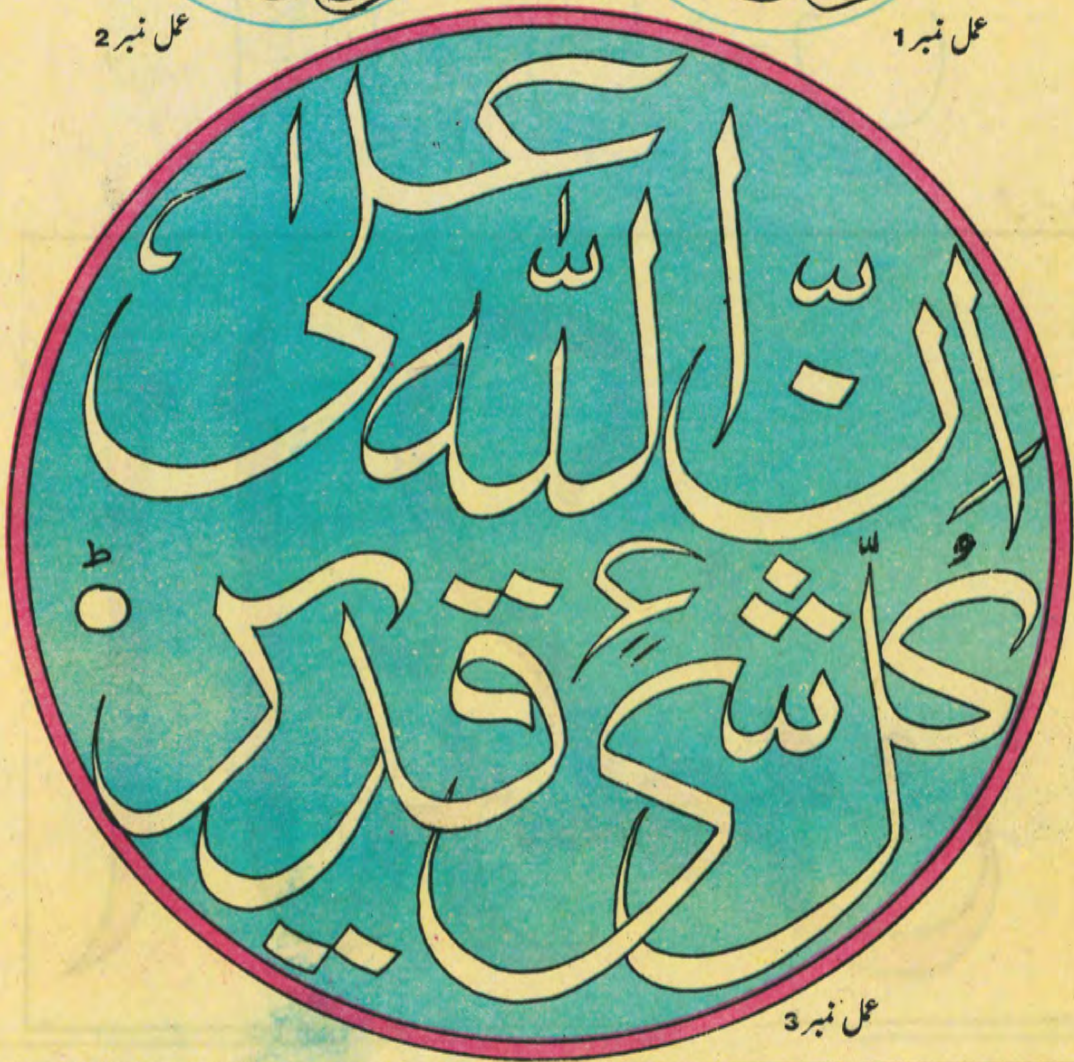 عمل نمبر 1
عمل نمبر 2
انّ اللّٰہ علیٰ
کُلّ شیءٍ قدیر ط
عمل نمبر 3